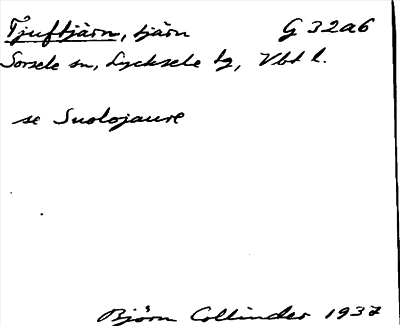 Tjuftjärn, tjärn G 32a6
Sorsele sn, Lycksele lg, Vbt l.
se Suolojaure
Björn Collinder 1937